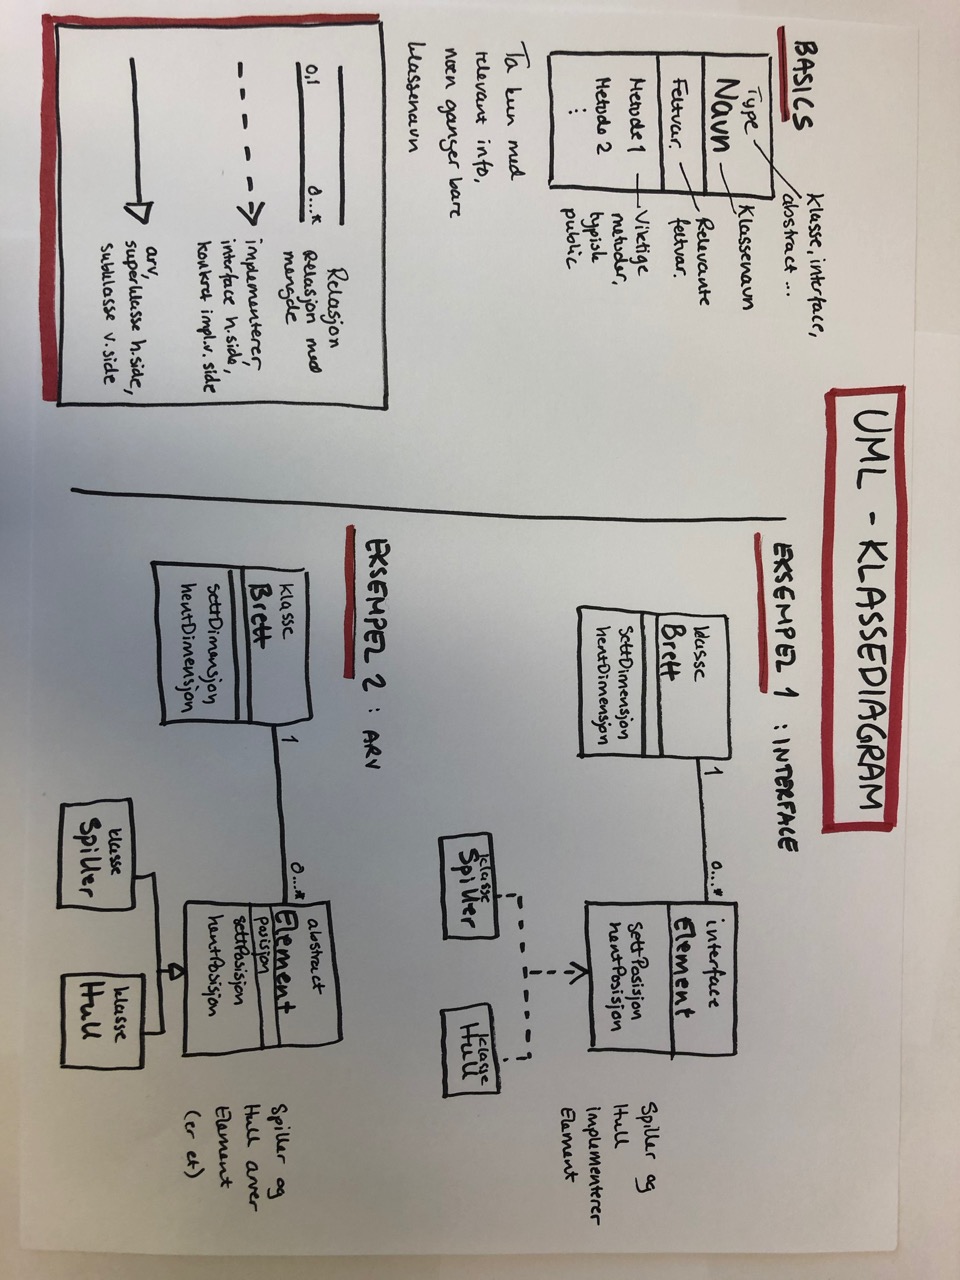 UML - KLASSEDIAGRAM
BASICS
klasse, interface,
abstract ...
Type
Navn
Klassenavn
Feltvar.
Relevante
feltvar.
Metode 1
Metode 2
⋮
Viktige
metoder,
typisk
public
Ta kun med
relevant info,
noen ganger bare
klassenavn
Relasjon
0,1
0...*
Relasjon med
mengde
implementerer,
interface h.side,
konkret impl.v. side
arv,
superklasse h.side,
subklasse v.side
EKSEMPEL 1 : INTERFACE
klasse
Brett
settDimensjon
hentDimensjon
1
0...*
interface
Element
settPosisjon
hentPosisjon
klasse
Spiller
klasse
Hull
Spiller og
Hull
implementerer
Element
EKSEMPEL 2 : ARV
klasse
Brett
settDimensjon
hentDimensjon
1
0...*
abstract
Element
posisjon
settPosisjon
hentPosisjon
klasse
Spiller
klasse
Hull
Spiller og
Hull arver
Element
(er et)